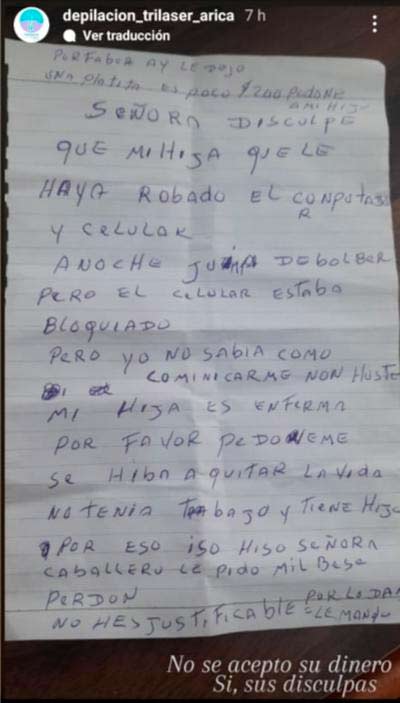 depilacion_trilaser_arica 7 h
Ver traducción
POR FABOR AY LE DEJO
UNA PLATITA ES POCO $200 PEDONE
A MI HIJA
SEÑORA DISCULPE
QUE MI HIJA QUE LE
HAYA ROBADO EL COMPUTADOR
Y CELULAR
ANOCHE DEBOLBER
PERO EL CELULAR ESTABA
BLOQUIADO
PERO YO NO SABIA COMO
COMINICARME NON HUSTE
MI HIJA ES ENFERMA
POR FAVOR PEDONEME
SE HIBA A QUITAR LA VIDA
NO TENIA TRABAZO Y TIENE HIJO
POR ESO ISO HISO SEÑORA
CABALLERO LE PIDO MIL BESE
PERDON
NO HES JUSTIFICABLE POR LO DAÑ
LE MANDO
No se acepto su dinero
Si, sus disculpas